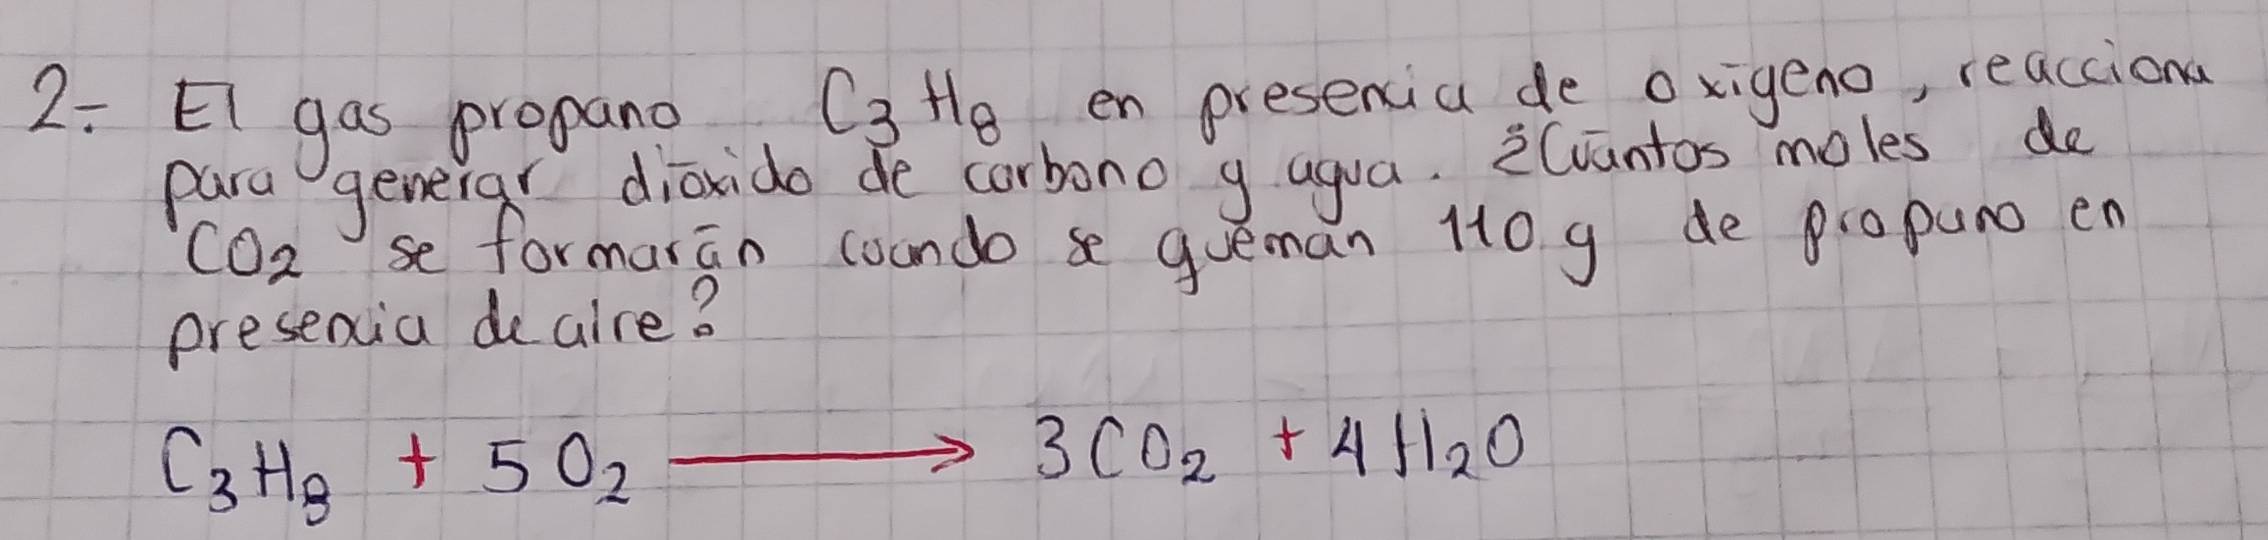 2.- El gas propano C₃H₈ en presencia de oxigeno, reacciona
para generar dióxido de carbono y agua. ¿Cuántos moles de
CO₂ se formarán cuando se queman 110 g de propano en
presencia de aire?
C₃H₈ + 5O₂ → 3CO₂ + 4H₂O